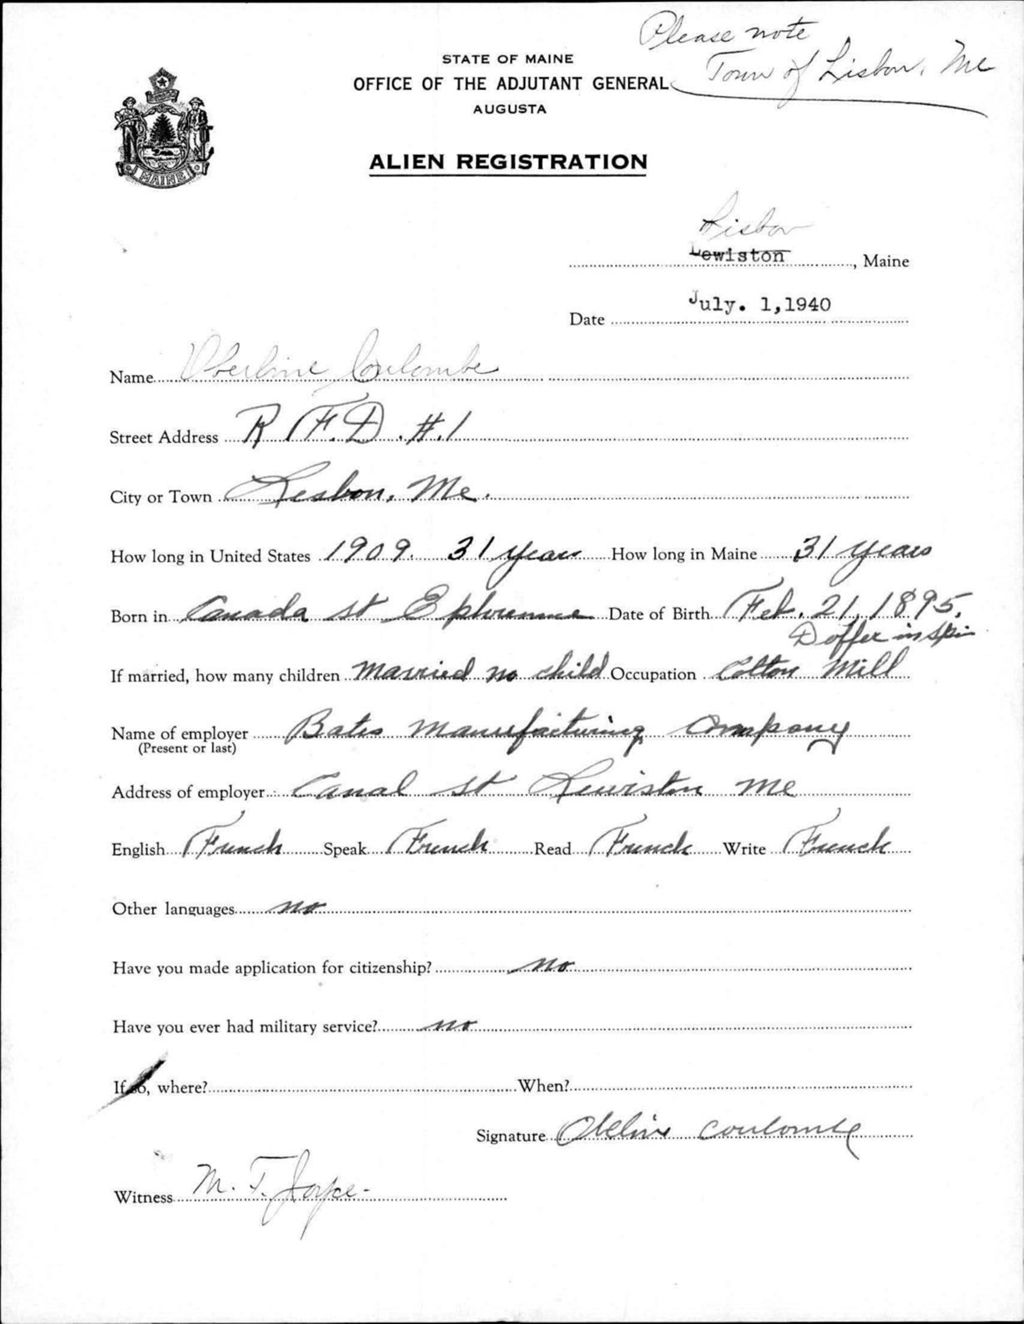 Please note
Town of Lisbon, Me
STATE OF MAINE
OFFICE OF THE ADJUTANT GENERAL
AUGUSTA
ALIEN REGISTRATION
MAINE
Lisbon
Lewiston, Maine
Date July. 1,1940
Name Coulombe
Street Address R F.D. #.1
City or Town Lisbon, Me.
How long in United States 1909. 31 years How long in Maine 31 years
Born in Canada st Date of Birth Feb. 21, 1895.
Doffer in Spin
If married, how many children Married no child Occupation Cotton Mill
Name of employer Bates Manufacturing Company
(Present or last)
Address of employer Canal st Lewiston Me
English French Speak French Read French Write French
Other languages no
Have you made application for citizenship? no
Have you ever had military service? no
If so, where? When?
Signature Coulombe
Witness M. T. Joyce-